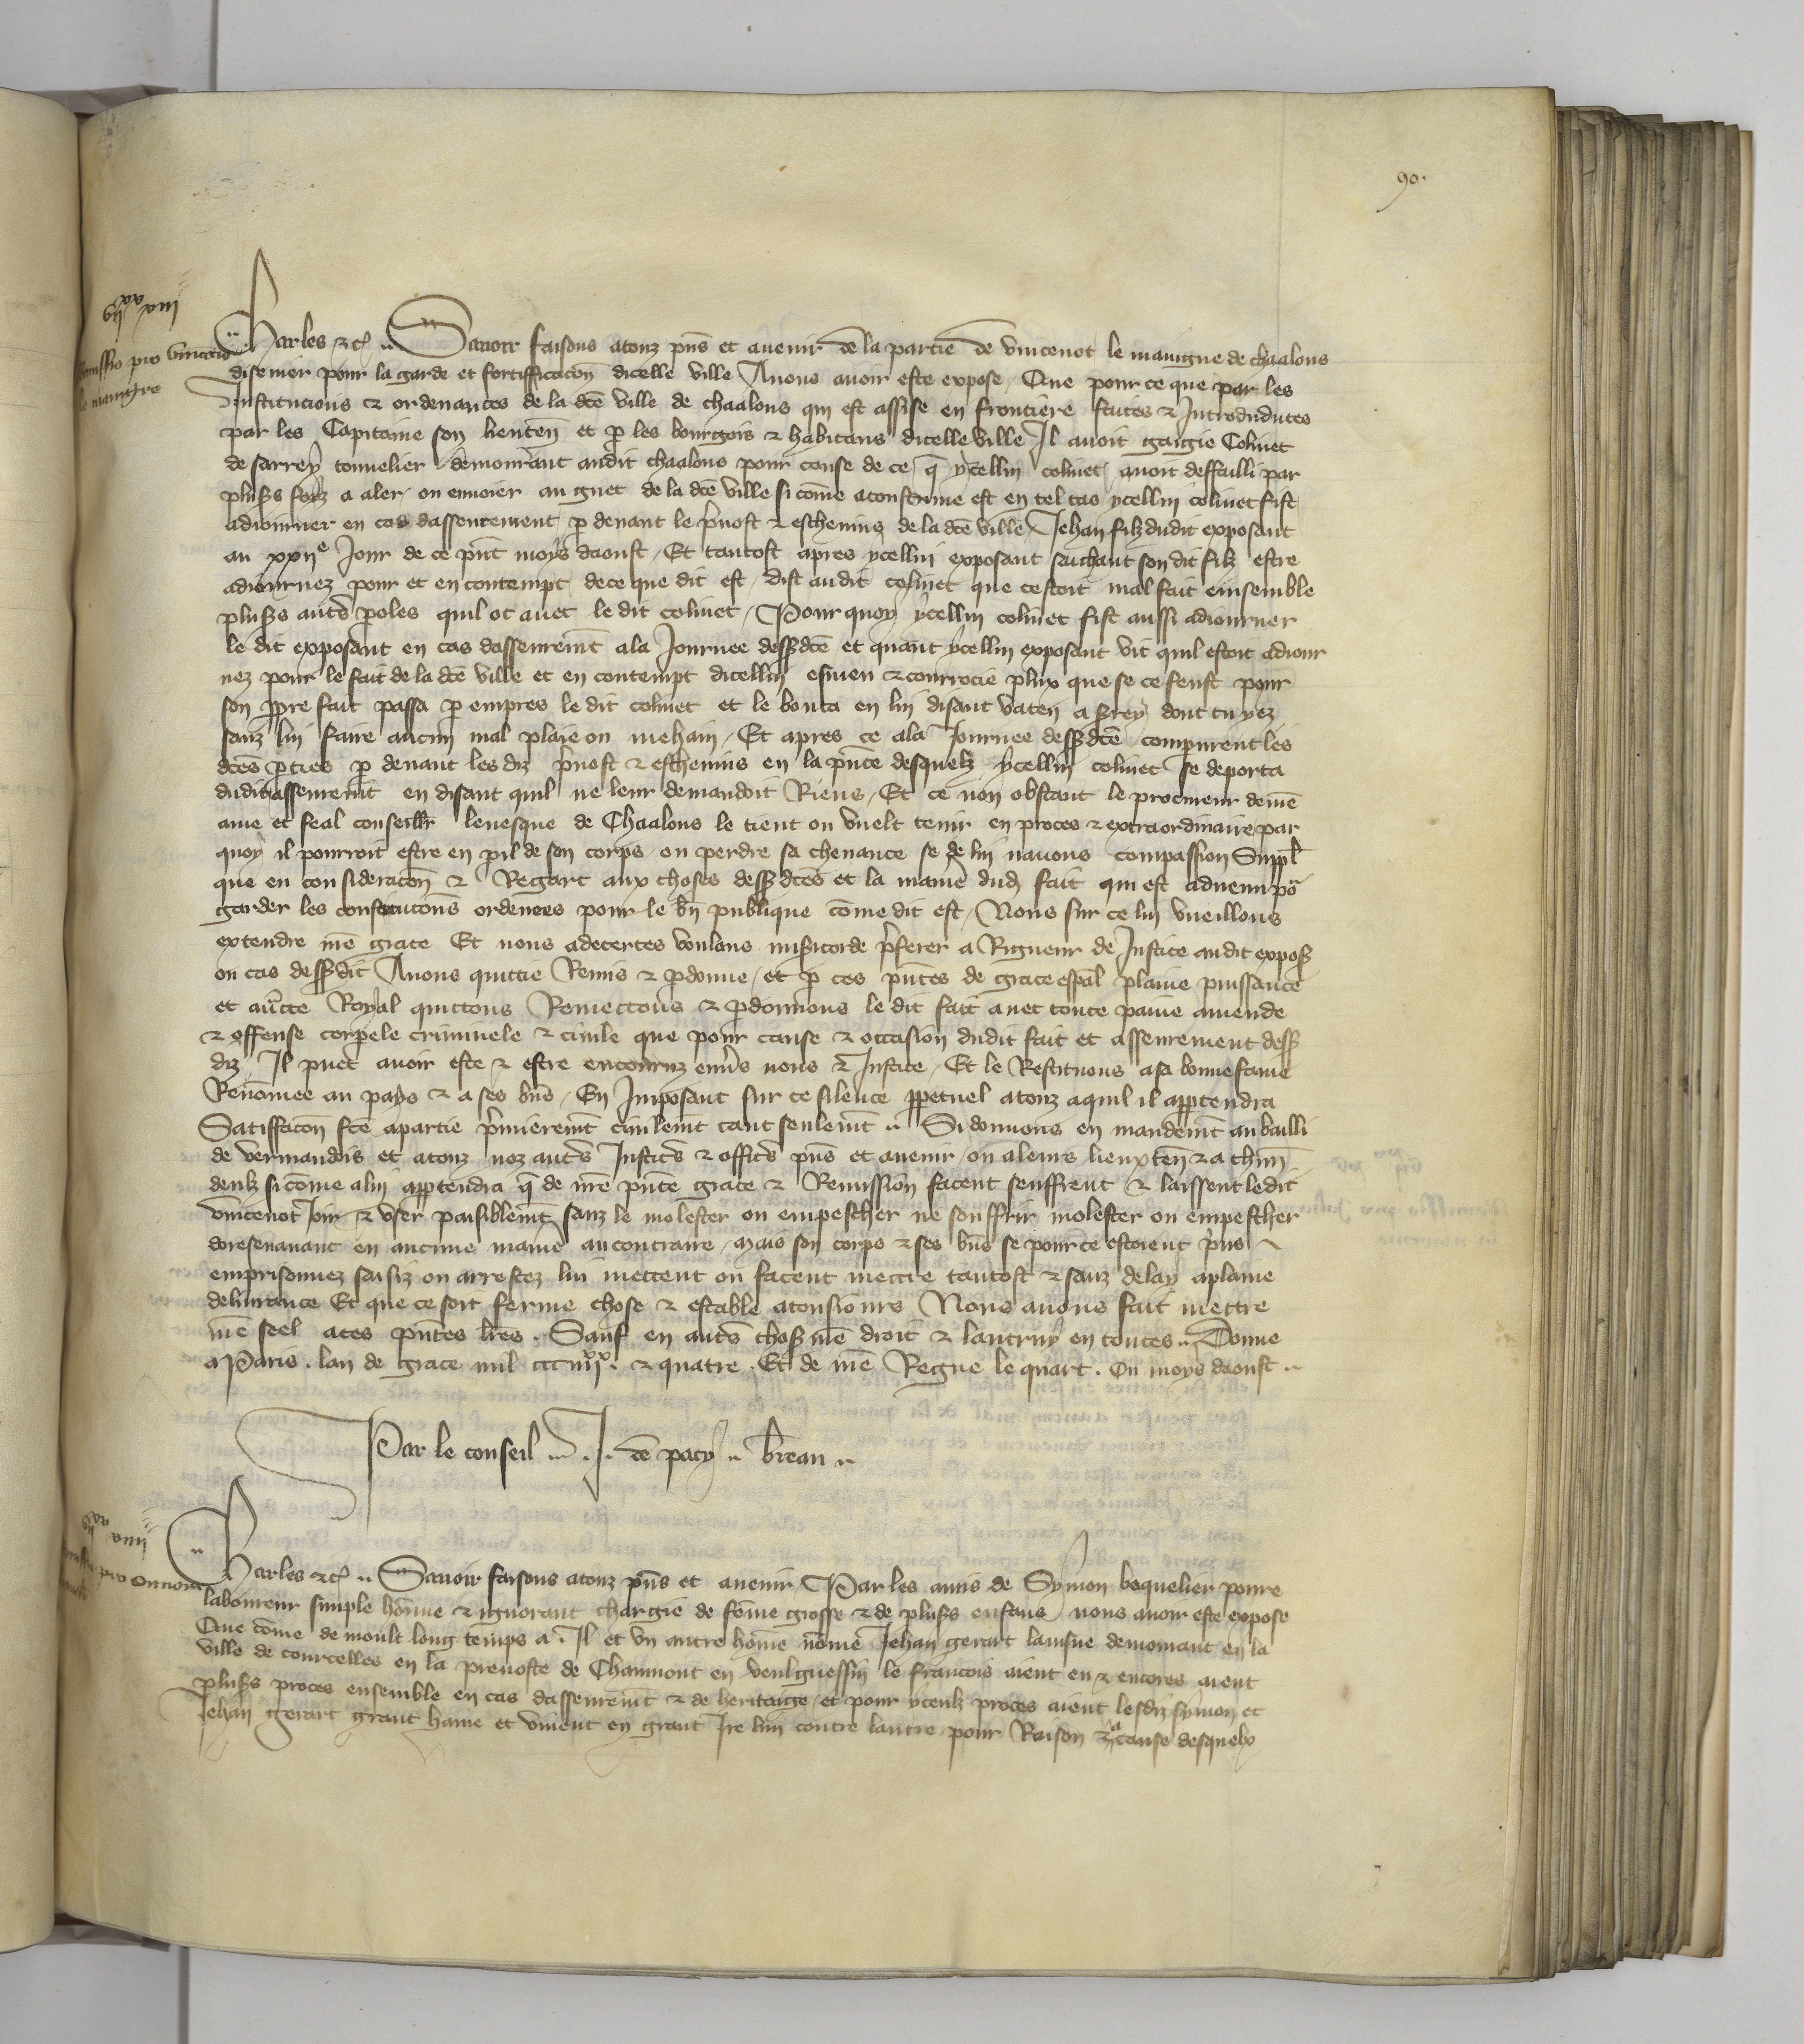 90.
vii xx xiii
Remissio pro vincencio
le mangre
Charles etc. Savoir faisons a touz pns et avenir de la partie de vincenot le mangne de chaalons
disenier pour la garde et fortifficacon dicelle ville Avons avoir este expose Que pour ce que par les
Institucions et ordenances de la dce ville de chaalons qui est assise en frontiere faites et Introduites
par les Capitaine son lieuten et p les bourgois et habitans dicelle ville Il avoit gaigie Colinet
de sarrey tonnelier demourant audit chaalons pour cause de ce q ycellui colinet avoit deffailli par
plusrs foiz a aler ou envoier au guet de la dce ville si come acoustume est en tel cas ycellui colinet fist
adiourner en cas dasseurement p devant le pvost et eschevins de la dce ville Jehan filz dudit exposant
au xxiie Jour de ce pnt moys daoust Et tantost apres ycellui exposant saichant son dit filz estre
adiournez pour et en contempt de ce que dit est dist audit colinet que cestoit mal fait ensemble
plusrs autrs poles quil ot avec le dit colinet Pour quoy ycellui colinet fist aussi adiourner
le dit exposant en cas dasseuremt a la Journee dessdce et quant ycellui exposant vit quil estoit adiour
nez pour le fait de la dce ville et en contempt dicellui esmeu et courrocie plux que se ce feust pour
son ppre fait passa p empres le dit colinet et le bouta en lui disant vaten a srey dont tu yez
sanz lui faire aucun mal plaie ou mehain Et apres ce a la Journee dessdce comparurent les
dces pties p devant les diz pvost et eschevins en la pnce desquelz ycellui colinet se deporta
dudit asseuremt en disant quil ne leur demandoit Riens Et ce non obstant le procureur de nre
ame et feal conseillr levesque de Chaalons le tient ou vuelt tenir en proces et extraordinaire par
quoy il pourroit estre en pil de son corps ou perdre sa chevance se de lui navons compassion Suppl
que en consideracon et Regart aux choses dessdces et la manie dud fait qui est advenu por
garder les constitucons ordenees pour le bn publique come dit est Nous sur ce lui vueillons
extendre nre grace Et nous adecertes voulans misicorde pferer a Rigueur de Justice audit exposz
ou cas dessdit Avons quittie Remis et pdonne et p ces pntes de grace espal plaine puissance
et aucte Royal quittons Remettons et pdonnons le dit fait avec toute paine amende
et offense corpele criminele et civile que pour cause et occasion dudit fait et asseurement dess
diz Il puet avoir este et estre encouruz envrs nous et Justice Et le Restituons a sa bonne fame
Renomee au pays et a ses bns En Imposant sur ce silence ppetuel a touz a quil il apptendra
Satiffacon fce a partie pmieremt civilemt tant seulemt Si donnons en mandemt au bailli
de vermandois et a touz noz autrs Justicrs et officrs pns et avenir ou a leurs lieuxten et a chun
deulz si come a lui apptendra q de nre pnte grace et Remission facent seuffrent et laissent ledit
vincenot Joir et user paisiblemt sanz le molester ou empescher ne souffrir molester ou empescher
doresenavant en aucune manie au contraire mais son corps et ses bns se pour ce estoient pris
emprisonnez saisiz ou arrestez lui mettent ou facent mettre tantost et sanz delay a plaine
delivrance Et que ce soit ferme chose et estable a tousiours Nous avons fait mettre
nre seel a ces pntes lres. Sauf en autrs chosrs nre droit et lautruy en toutes. Donne
a Paris. lan de grace mil ccciiiixx et quatre. Et de nre Regne le quart. Ou moys daoust
Par le conseil ... J. de pacy .. breau ..
vii xx xiiii
pro
Charles etc. Savoir faisons a touz pns et avenir Par les amis de Symon boquelier povre
laboureur simple home et ignorant chargie de feme grosse et de plusrs enfans nous avoir este expose
Que come de moult long temps a Il et un autre home nome Jehan gerart lainsne demourant en la
ville de courcelles en la prevoste de Chaumont en veulguessin le francois aient eu et encores aient
plusrs proces ensemble en cas dasseuremt et de heritaige et pour yceulz proces aient lesdiz symon et
Jehan gerart grant haine et vivent en grant Ire lun contre lautre pour Raison et a cause desquelx